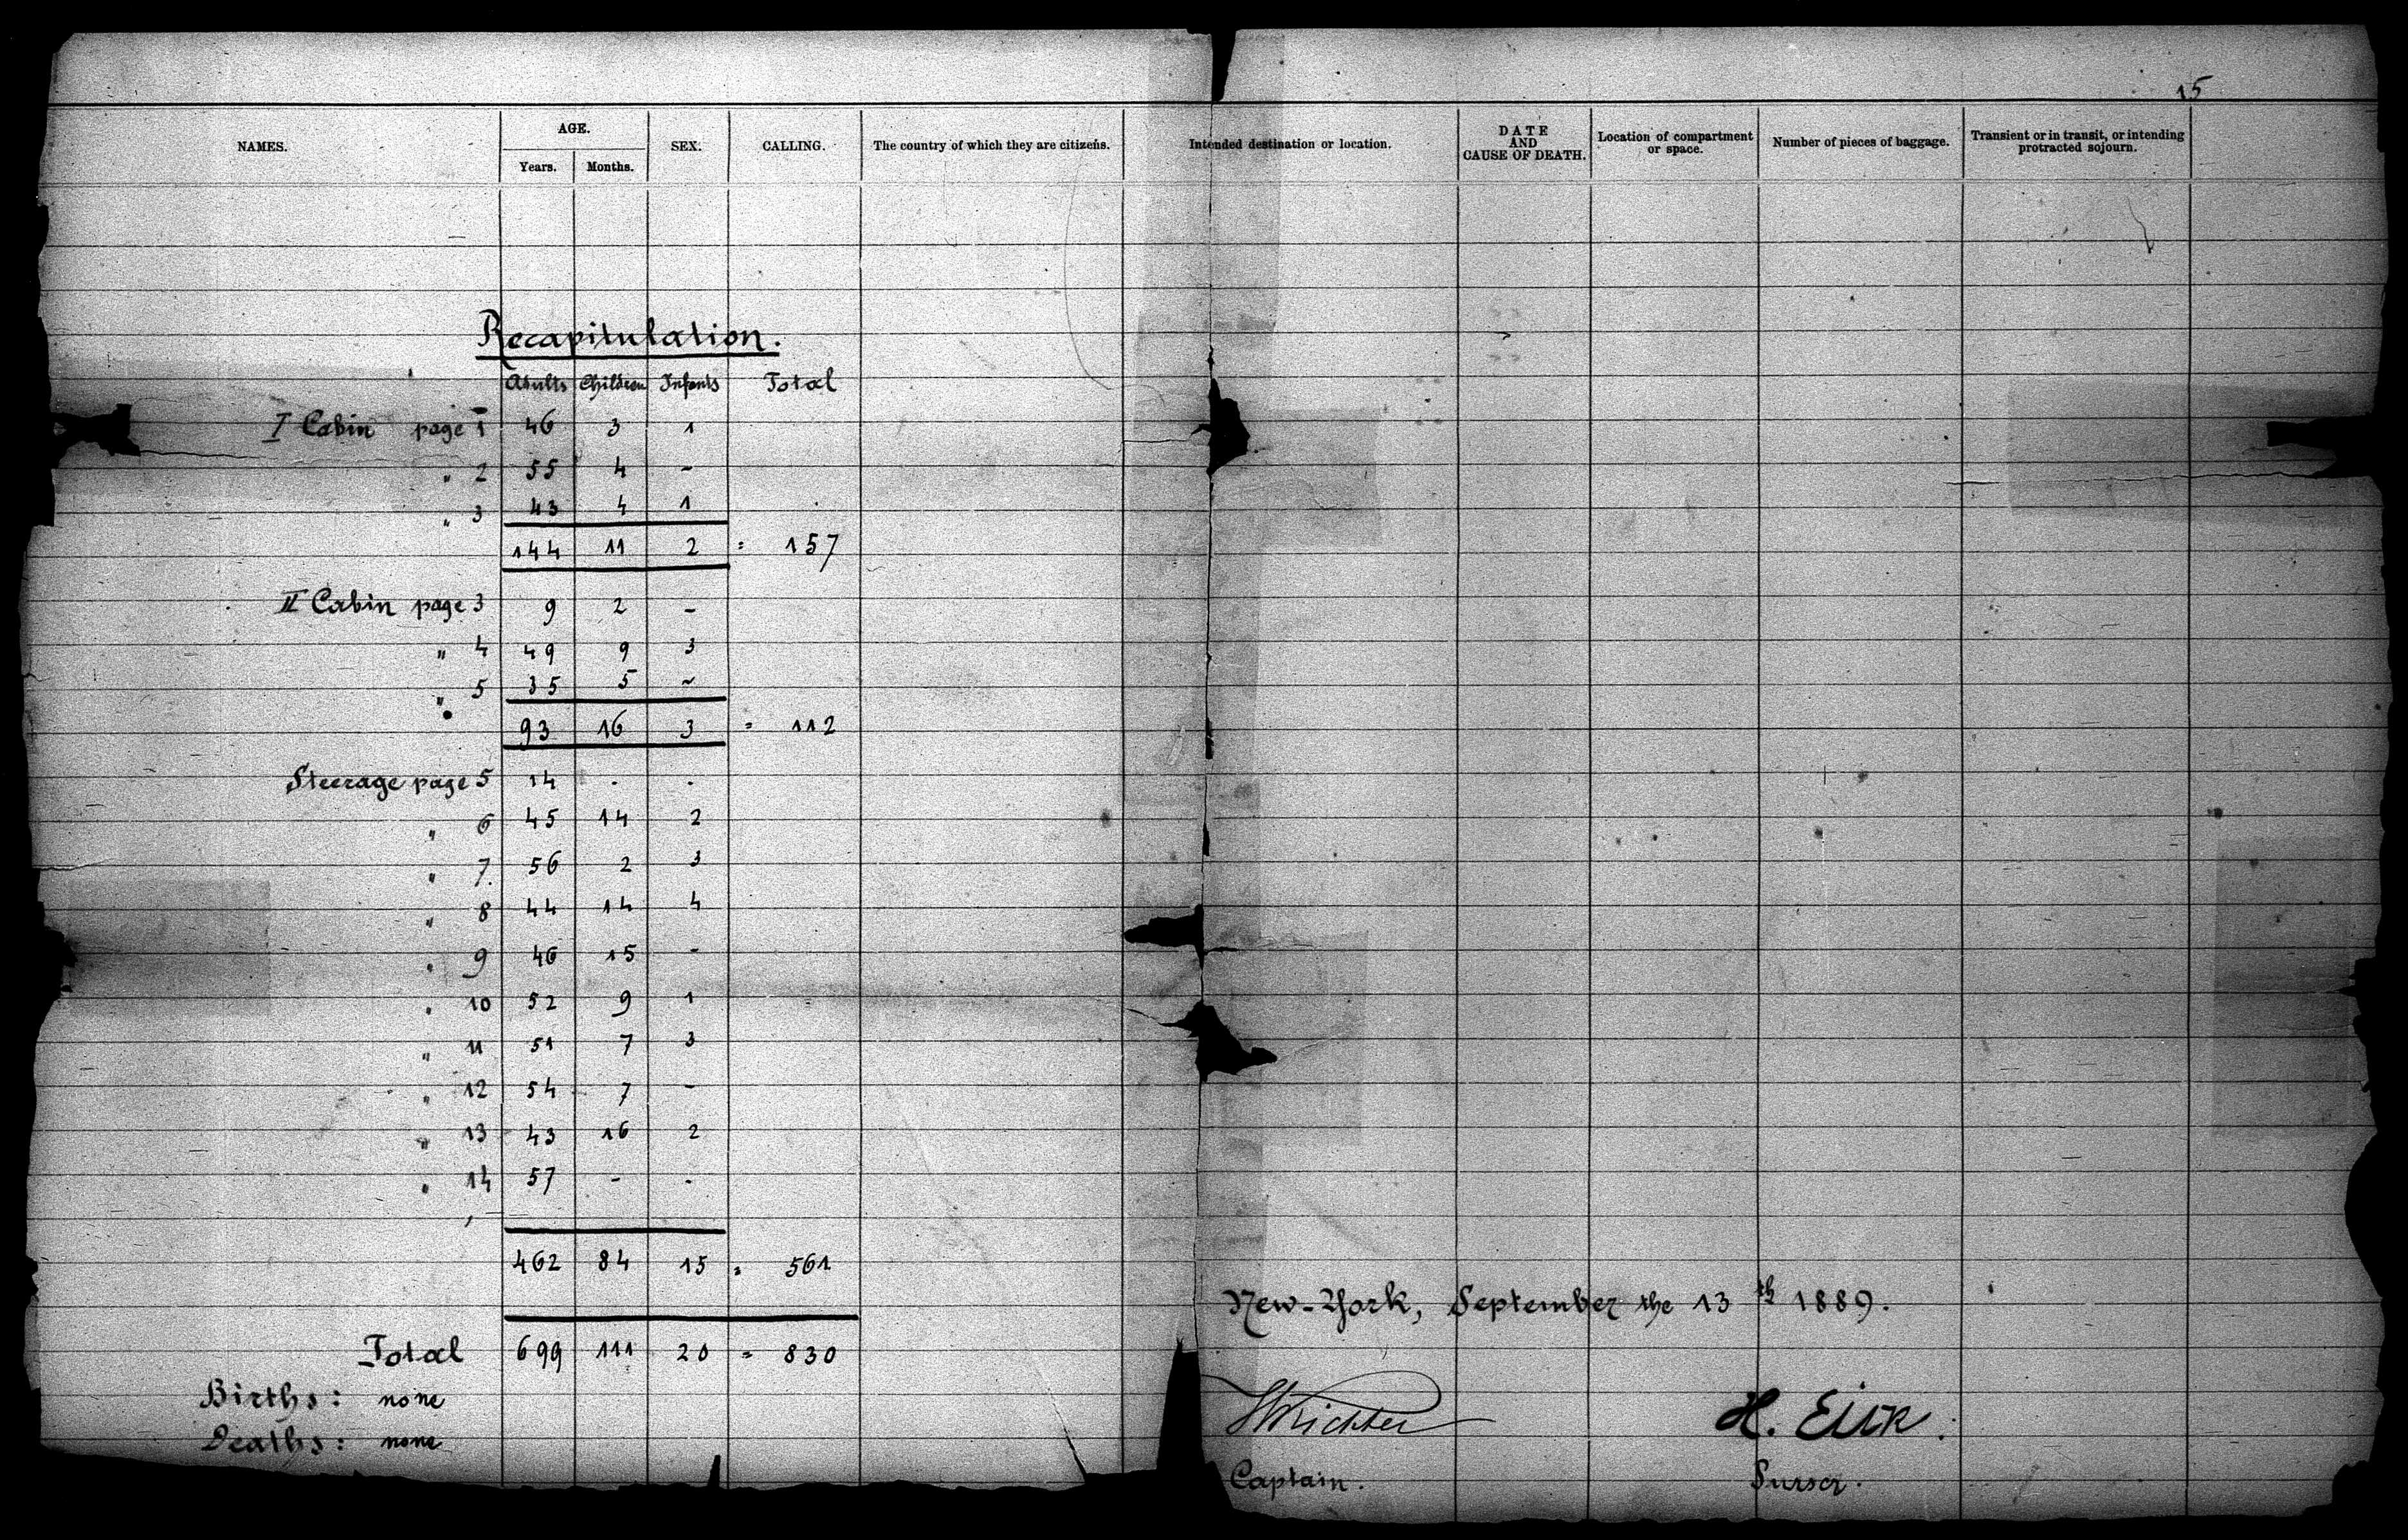 15
NAMES. AGE. SEX. CALLING. The country of which they are citizens. Intended destination or location. DATE AND CAUSE OF DEATH. Location of compartment or space. Number of pieces of baggage. Transient or in transit, or intending protracted sojourn.
Years. Months.
Recapitulation.
Adults Children Infants Total
I Cabin page 1 46 3 1
" 2 55 4 -
" 3 43 4 1
144 11 2 = 157
II Cabin page 3 9 2 -
" 4 49 9 3
" 5 35 5 ~
93 16 3 = 112
Steerage page 5 14 - -
" 6 45 14 2
" 7. 56 2 3
" 8 44 14 4
" 9 46 15 -
" 10 52 9 1
" 11 51 7 3
" 12 54 7 -
" 13 43 16 2
" 14 57 - -
462 84 15 = 561
New-York, September the 13th 1889.
Total 699 111 20 = 830
Births: none
Deaths: none
Richter H.
Captain. Purser.